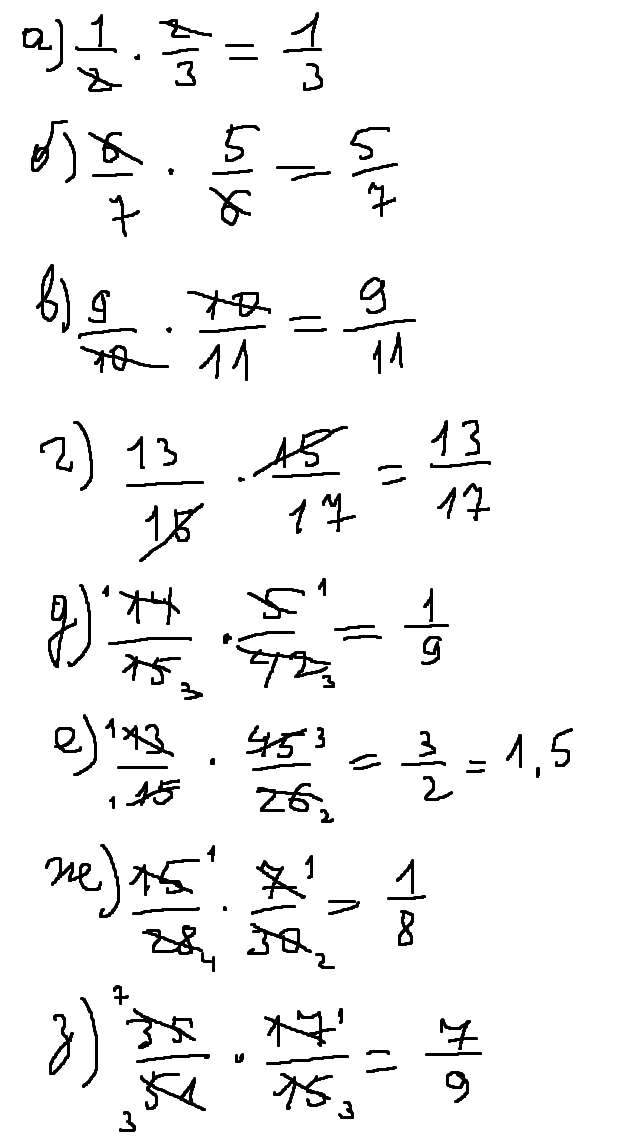 а) 1/2 · 2/3 = 1/3
б) 6/7 · 5/6 = 5/7
в) 9/10 · 10/11 = 9/11
г) 13/15 · 15/17 = 13/17
д) 1 14/15 3 · 5 1/42 3 = 1/9
е) 1 13/1 15 · 45 3/26 2 = 3/2 = 1,5
ж) 15 1/28 4 · 7 1/30 2 = 1/8
з) 7 35/3 51 · 17 1/15 3 = 7/9